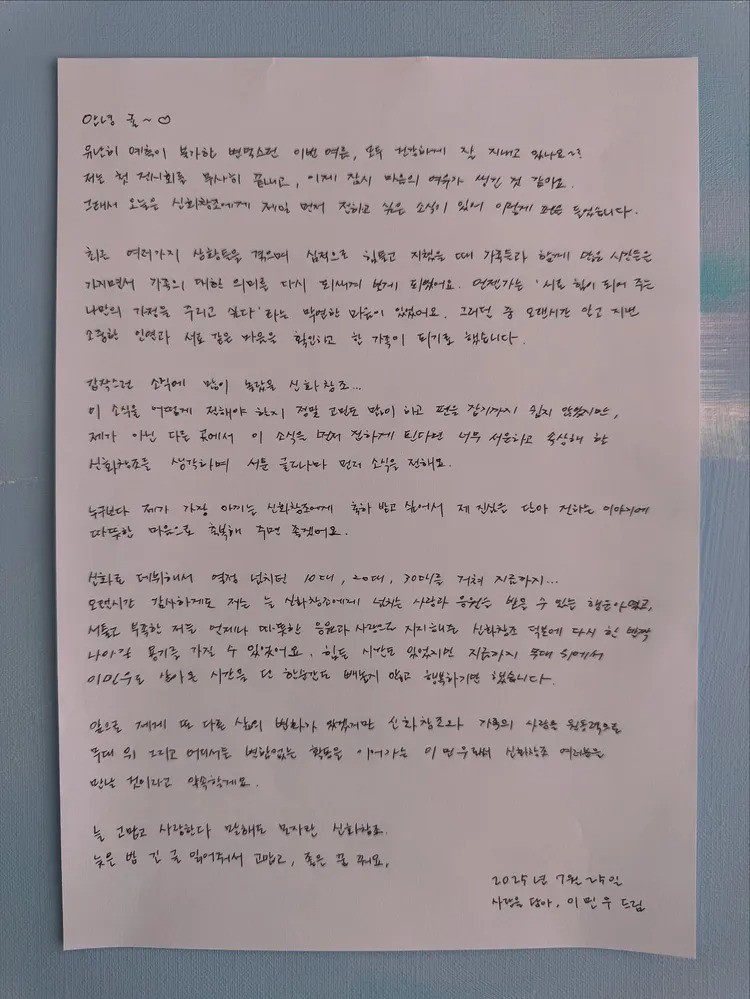 안녕 귤~♡
유난히 예측이 불가한 변덕스런 이번 여름, 모두 건강하게 잘 지내고 있나요~?
저는 첫 전시회를 무사히 끝내고, 이제 잠시 마음의 여유가 생긴 것 같아요.
그래서 오늘은 신화창조에게 제일 먼저 전하고 싶은 소식이 있어 이렇게 펜을 들었습니다.
최근 여러가지 상황들을 겪으며 심적으로 힘들고 지쳤을 때 가족들과 함께 많은 시간들을
가지면서 가족의 대한 의미를 다시 되새기게 되었어요. 언젠가는 '서로 힘이 되어 주는
나만의 가정을 꾸리고 싶다'라는 막연한 마음이 있었어요. 그러던 중 오랜시간 알고 지낸
소중한 인연과 서로 같은 마음을 확인하고 한 가족이 되기로 했습니다.
갑작스런 소식에 많이 놀랐을 신화창조...
이 소식을 어떻게 전해야 할지 정말 고민도 많이 하고 펜을 잡기까지 쉽지 않았지만,
제가 아닌 다른 곳에서 이 소식을 먼저 접하게 된다면 너무 서운하고 속상해 할
신화창조를 생각하며 서툰 글로나마 먼저 소식을 전해요.
누구보다 제가 가장 아끼는 신화창조에게 축하 받고 싶어서 제 진심을 담아 전하는 이야기에
따뜻한 마음으로 축복해 주면 좋겠어요.
신화로 데뷔해서 열정 넘치던 10대, 20대, 30대를 거쳐 지금까지...
오랜시간 감사하게도 저는 늘 신화창조에게 넘치는 사랑과 응원을 받을 수 있는 행운아였고,
서툴고 부족한 저를 언제나 따뜻한 응원과 사랑으로 지지해준 신화창조 덕분에 다시 한 발짝
나아갈 용기를 가질 수 있었어요. 힘든 시간도 있었지만 지금까지 무대 위에서
이민우로 살아온 시간을 단 한순간도 빼놓지 않고 행복하기만 했습니다.
앞으로 제게 또 다른 삶의 변화가 있겠지만 신화창조와 가족의 사랑을 원동력으로
무대 위 그리고 어디서든 변함없는 활동을 이어가는 이민우로써 신화창조 여러분을
만날 것이라고 약속할게요.
늘 고맙고 사랑한다 말해도 모자란 신화창조.
늦은 밤 긴 글 읽어줘서 고맙고, 좋은 꿈 꿔요.
2025년 7월 25일
사랑을 담아. 이민우 드림